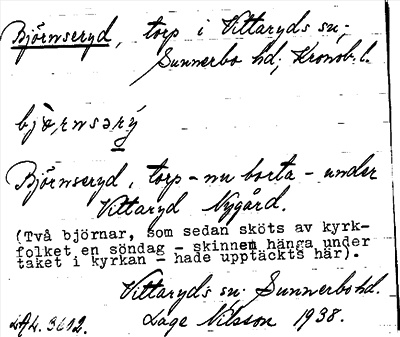 Björnseryd, torp i Vittaryds sn;
Sunnerbo hd; Kronob. l.
bjö̀ɹnsəɹý
Björnseryd, torp – nu borta – under
Vittaryd Nygård.
(Två björnar, som sedan sköts av kyrk-
folket en söndag – skinnen hänga under
taket i kyrkan – hade upptäckts här).
Vittaryds sn. Sunnerbo hd.
LAL. 3612. Lage Nilsson 1938.